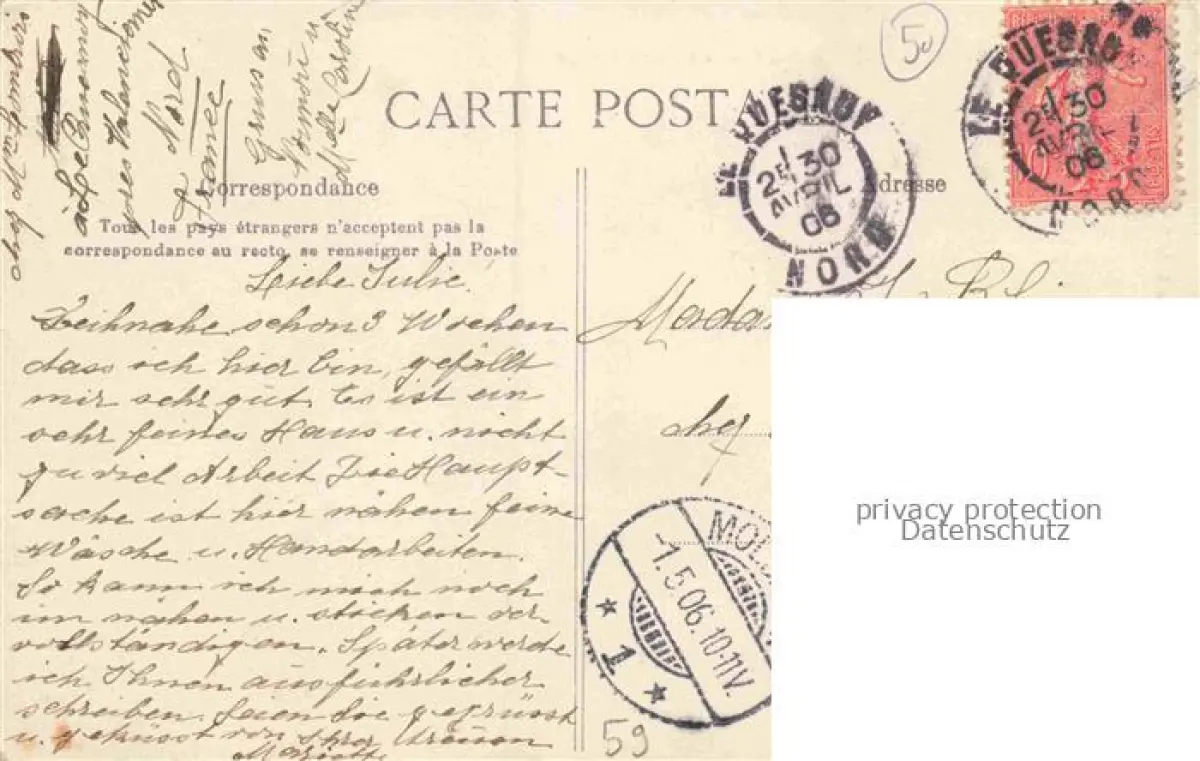 chez
à Le Quesnoy
près Valenciennes
Nord
France
Gruss an
u
Melle Caroline
50
CARTE POSTA
LE QUESNOY
1
2E 30
AVRIL
06
NORD
LE QUESNOY
1
2E 30
AVRIL
06
NORD
Correspondance
Adresse
Tous les pays étrangers n'acceptent pas la
correspondance au recto, se renseigner à la Poste
Liebe Julie.
Beihnahe schon 3 Wochen
dass ich hier bin, gefällt
mir sehr gut. Es ist ein
sehr feines Haus u. nicht
zu viel Arbeit Die Haupt-
sache ist hier nähen feine
Wäsche u. Handarbeiten.
So kann ich mich noch
im nähen u. sticken ver-
vollständigen. Später werde
ich Ihnen ausführlicher
schreiben. Seien Sie gegrüsst
u. geküsst von Ihrer treuen
Mada
chez
MOL
-1.5.06.10-11V.
1
59
privacy protection
Datenschutz